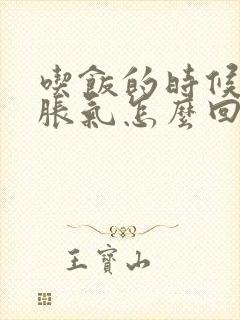 喫飯的時候
脹氣怎麼回
王寶山